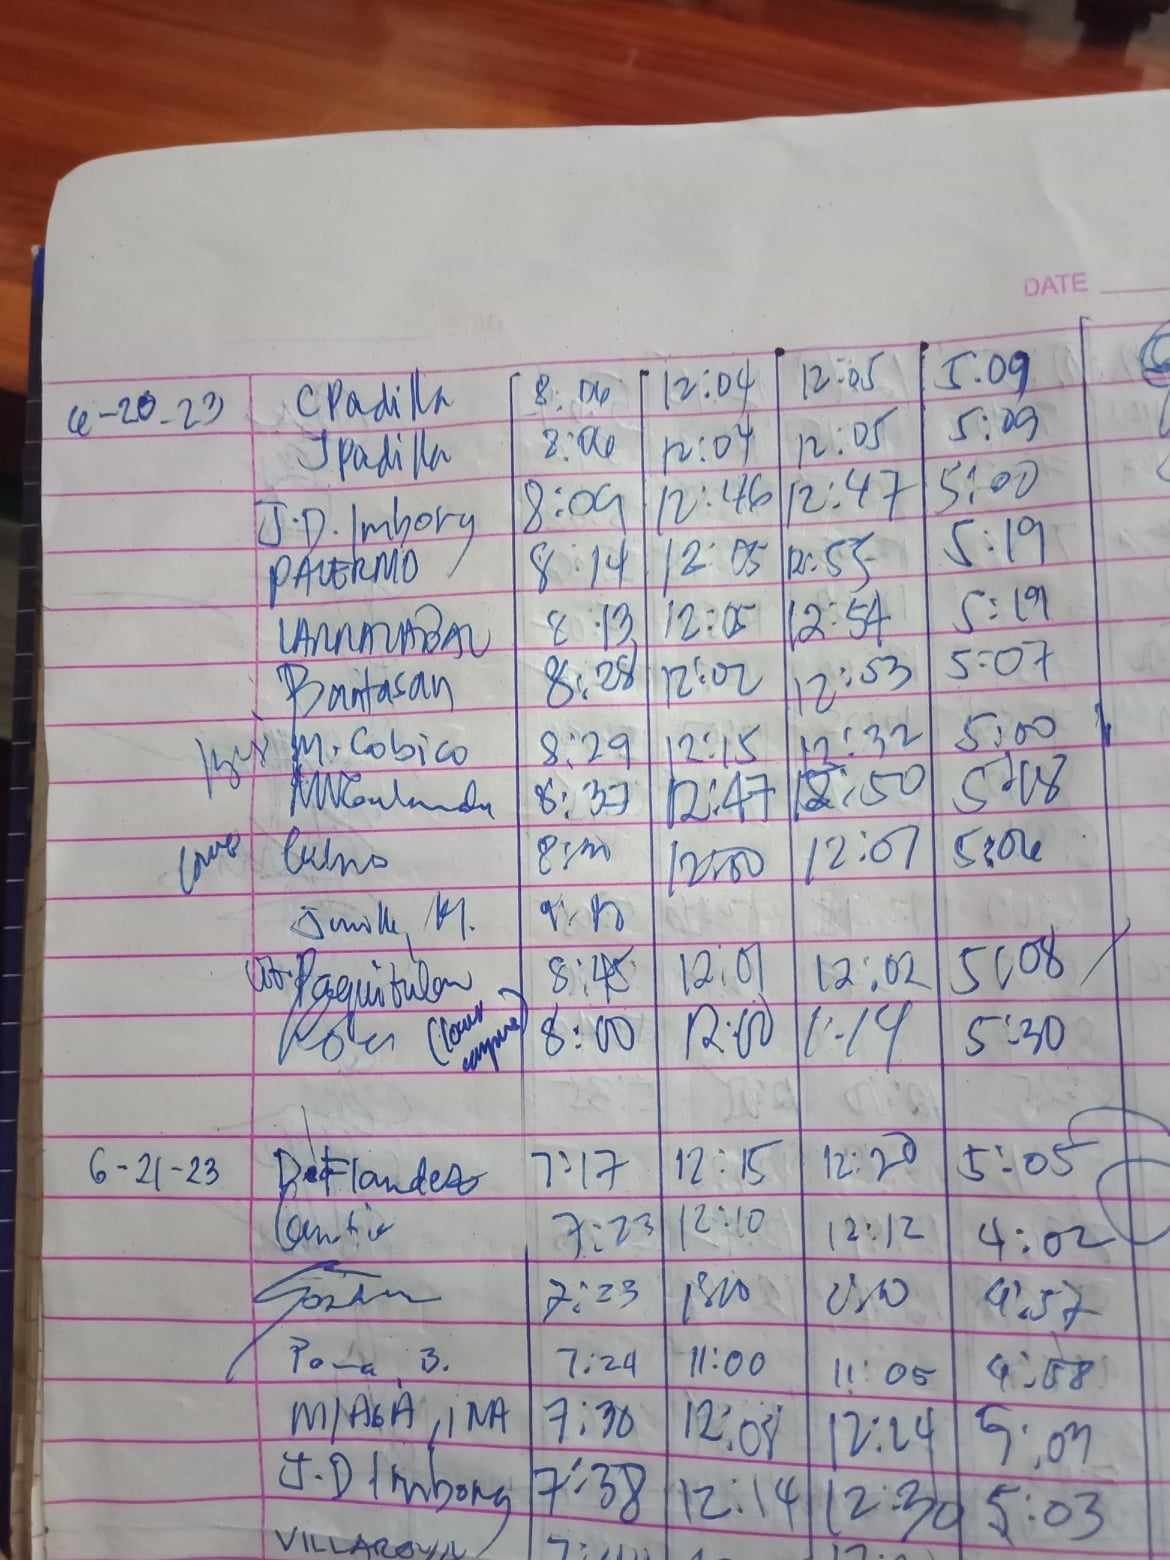 DATE
6-20-23 C Padilla 8:06 12:04 12:05 5:09
J Padilla 8:06 12:04 12:05 5:09
J.D. Imbory 8:09 12:46 12:47 5:00
PALERMO 8:14 12:05 12:55 5:19
8:13 12:05 12:54 5:19
Bantasan 8:28 12:02 12:53 5:07
M. Cobico 8:29 12:15 12:32 5:00
8:37 12:47 12:50 5:08
12:00 12:01 5:06
M.
Paguitulan 8:45 12:01 12:02 5:08
8:00 12:00 1:14 5:30
6-21-23 Flandez 7:17 12:15 12:20 5:05
7:23 12:10 12:12 4:02
7:23 4:57
B. 7:24 11:00 11:05 4:58
MIAGA, INA 7:30 12:08 12:24 5:09
J.D Imbong 7:38 12:14 12:30 5:03